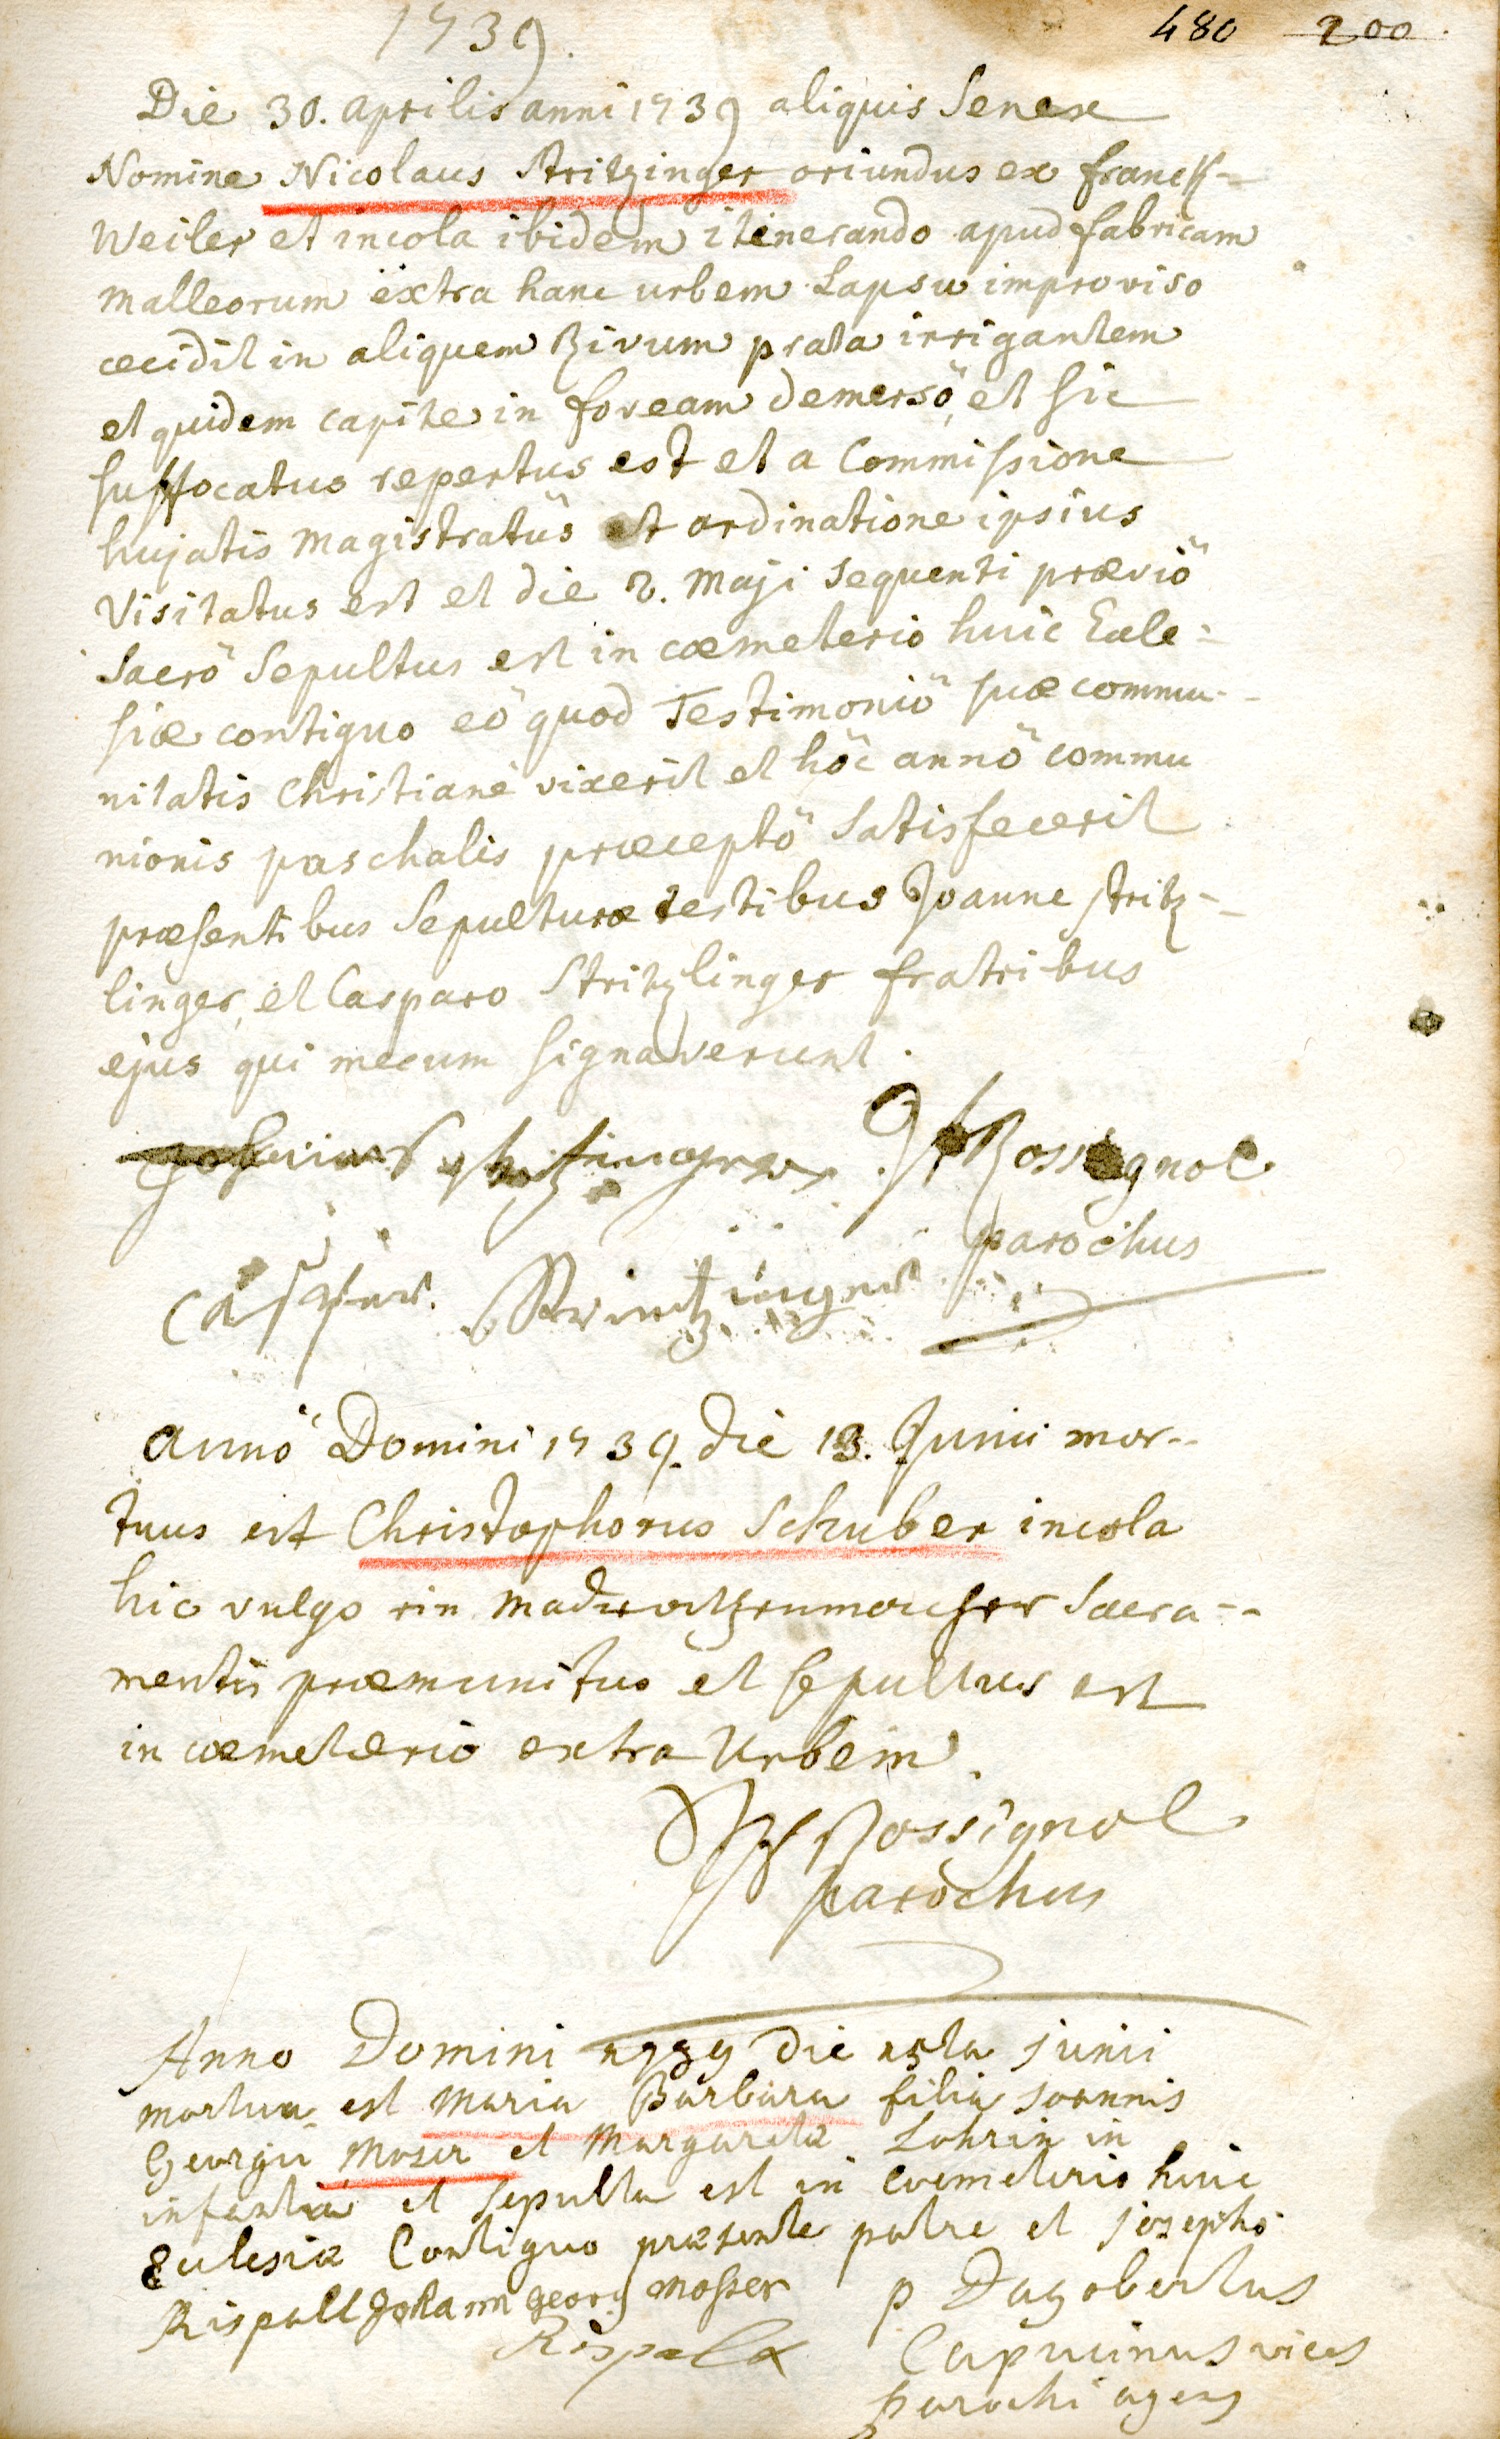 1739.
480 200.
Die 30. aprilis anni 1739 aliquis Senex
Nomine Nicolaus Stritzinger oriundus ex franck-
Weiler et incola ibidem itinerando apud fabricam
malleorum extra hanc urbem Lapsu improviso
cecidit in aliquem Rivum prata irrigantem
et quidem capite in foveam demersô, et sic
suffocatus repertus est et a Commissione
hujatis Magistratûs et ordinatione ipsius
Visitatus est et die 2. Maji sequenti præviô
Sacrô Sepultus est in cæmeterio huic Eccle-
siæ contiguo eô quod Testimoniô suæ commu-
nitatis Christianè vixerit et hôc annô commu
nionis paschalis præceptô satisfecerit
præsentibus Sepulturæ testibus Joanne Stritz-
linger, et Casparo Stritzlinger fratribus
ejus qui mecum signaverunt.
Rossignol
parochus
Caspar
annô Domini 1739. die 13. Junii mor-
tuus est Christophorus Schuber incola
hic vulgo ein Sacra-
mentis præmunitus et sepultus est
in cæmeterio extra Urbem.
Rossignol
parochus
Anno Domini 1739 die junii
mortua est Maria Barbara filia joannis
Georgii Moser et Margaretæ Lohrin in
infantia et sepulta est in Coemeterio huic
Eclesiæ Contiguo præsente patre et josepho
Rispalt Johann Georg Mosser
p Dagobertus
Rispalt
Capucinus vices
parochi agens